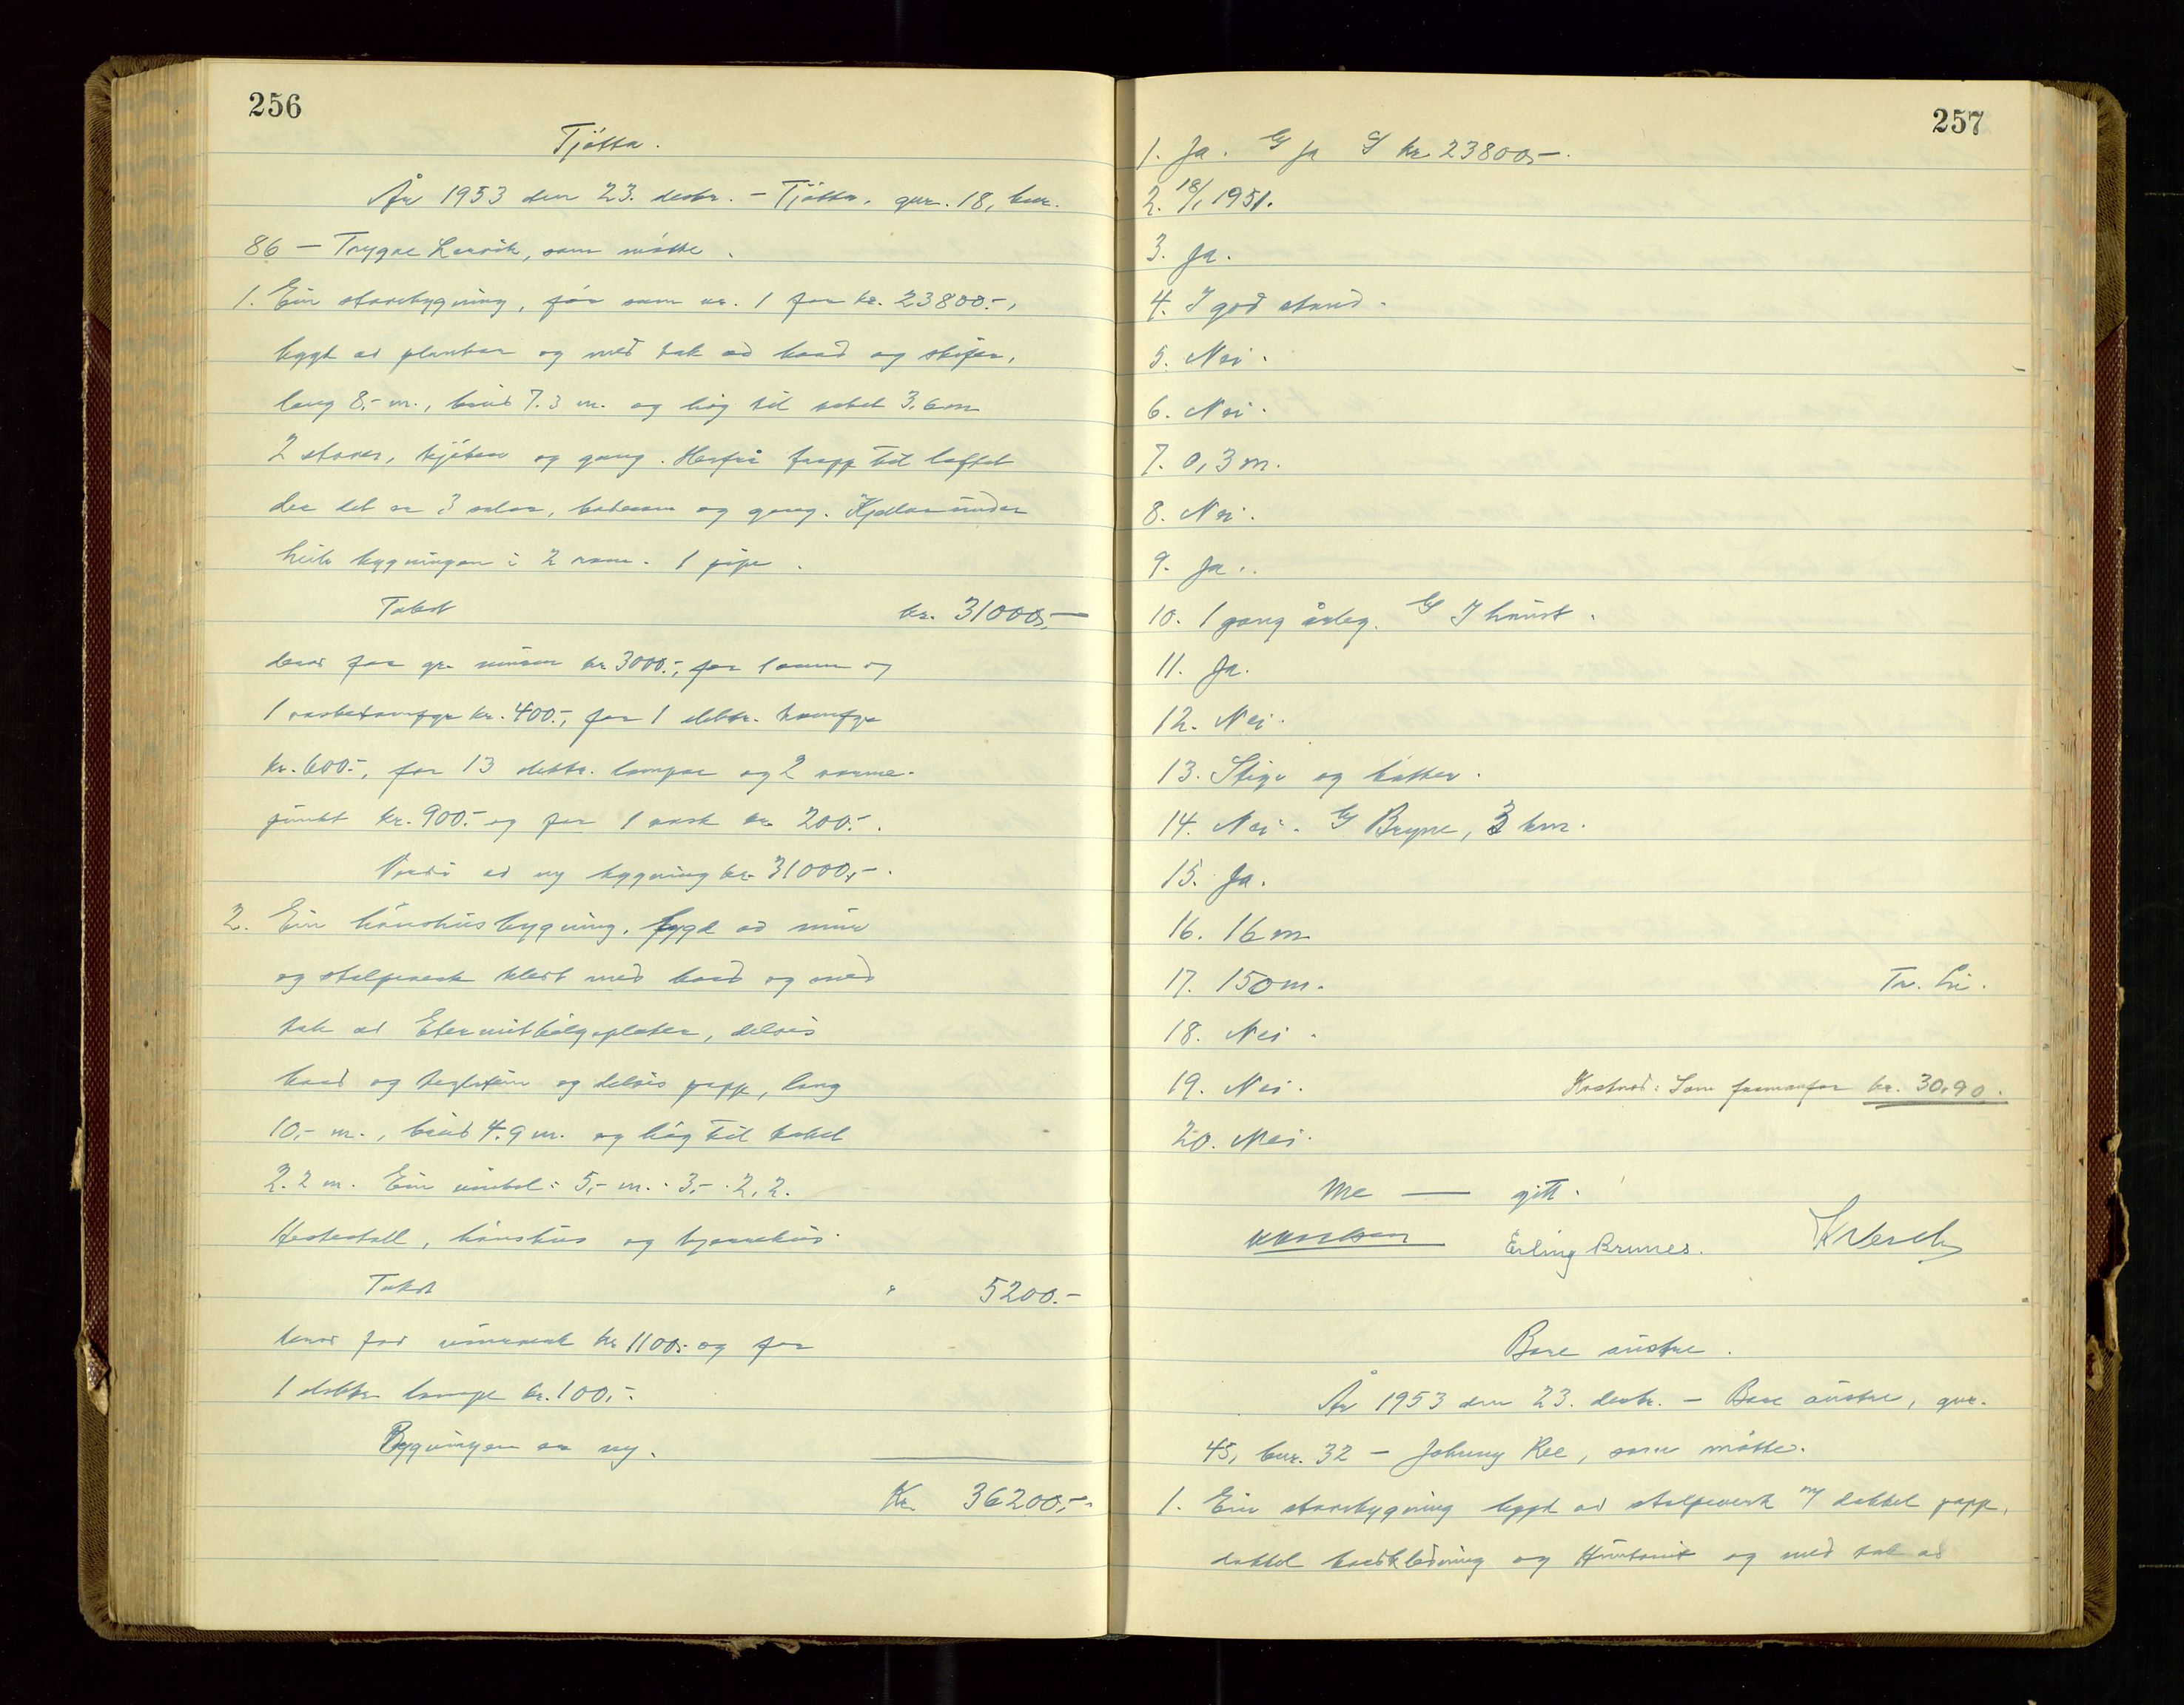 256
Tjøtta.
År 1953 den 23. desbr. – Tjøtta, gnr. 18, bnr.
86 – Trygve Lervik, som møtte.
1. Ein stovebygning, før som nr. 1 for kr. 23800.-,
bygt av plankar og med tak av bord og skifer,
lang 8,- m., breid 7.3 m. og høg til taket 3,6 m
2 stover, kjøken og gang. Herfrå trapp til loftet
der det er 3 soloer, baderom og gang. Kjellar under
heile bygningen i 2 rom. 1 pipe.
Takst kr. 31000,-
derav for gr. muren kr 3000.-, for 1 omn og
1 kr. 400.-, for 1 elektr. komfyr
kr. 600.-, for 13 elektr. lampor og 2 varme-
punkt kr. 900.- og for 1 vask kr 200.-.
Verdi av ny bygning kr 31000,-.
2. Ein hønshusbygning, bygt av mur
og stolpeverk kledt med bord og med
tak av Eternitbølgeplater, delvis
bord og teglstein og delvis papp, lang
10,- m., breid 4.9 m. og høg til taket
2.2 m. Ein vinkel: 5,- m. · 3,- · 2,2.
Hestestall, hønshus og
Takst " 5200.-
derav for murverk kr 1100.- og for
1 elektr lampe kr. 100,-.
Bygningen er ny.
Kr. 36200,-
257
1. Ja. b/ Ja c/ kr. 23800,-.
2. 18/1 1951.
3. Ja.
4. I god stand.
5. Nei.
6. Nei.
7. 0,3 m.
8. Nei.
9. Ja.
10. 1 gang årleg. b/ I haust.
11. Ja.
12. Nei.
13. Stige og bøtter.
14. Nei. b/ Bryne, 3 km.
15. Ja.
16. 16 m
17. 150 m. Tr. Li.
18. Nei.
19. Nei. Kostnad: Som framanfor kr. 30,90.
20. Nei.
Me — gitt.
Erling Brunes.
Bore austre.
År 1953 den 23. desbr. – Bore austre, gnr.
45, bnr. 32 – Johnny Ree, som møtte.
1. Ein stovebygning bygt av stolpeverk m/ dobbel papp,
dobbel bordkledning og Huntonit og med tak av